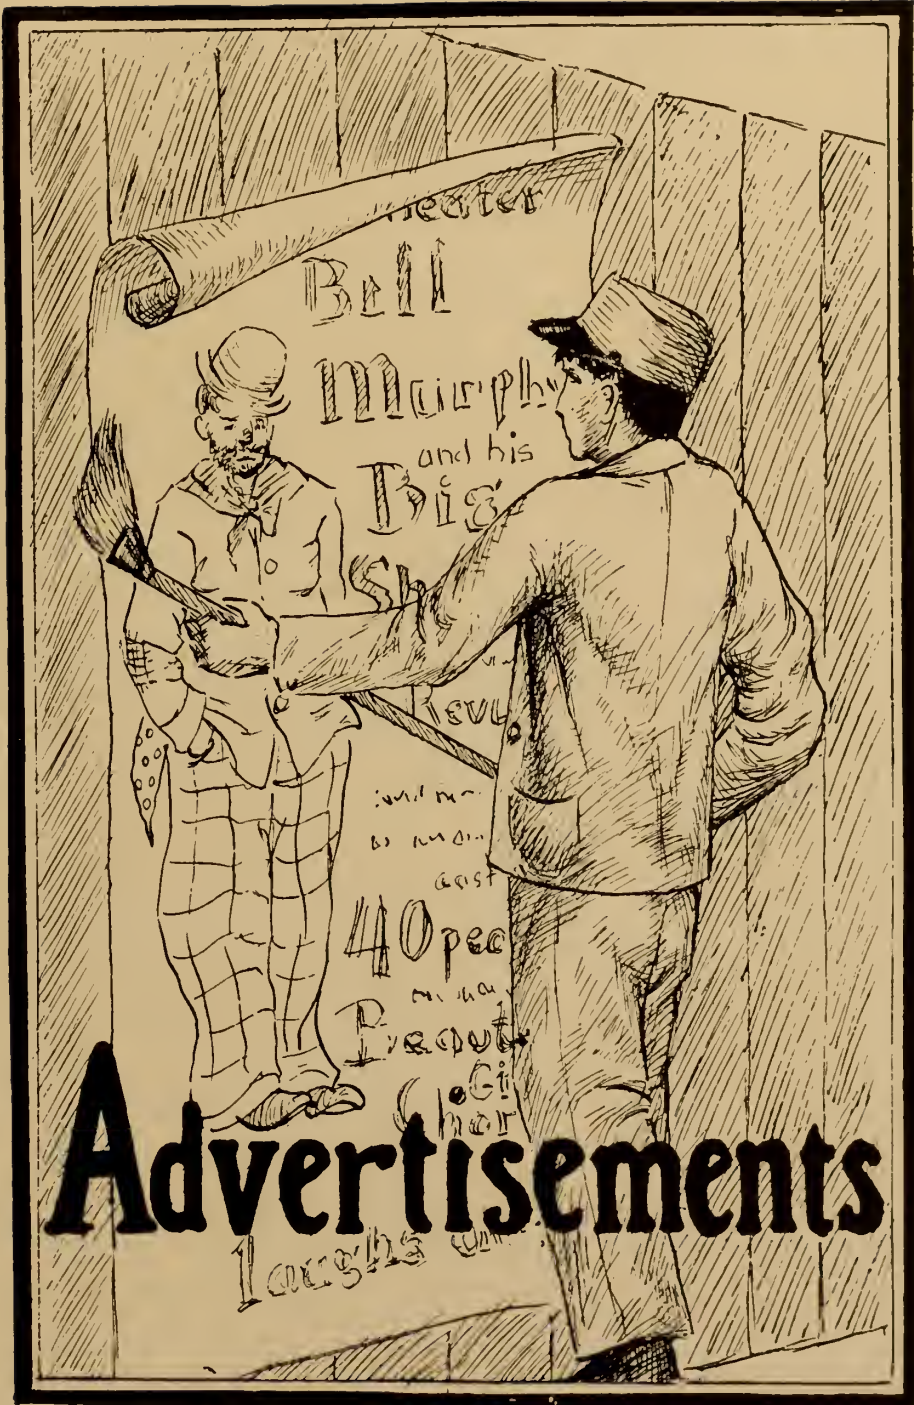 heater
Bell
Murphy
and his
Big
Sh
Revu
cast
40 peo
Beaut
Gi
Chor
Advertisements
Laughs